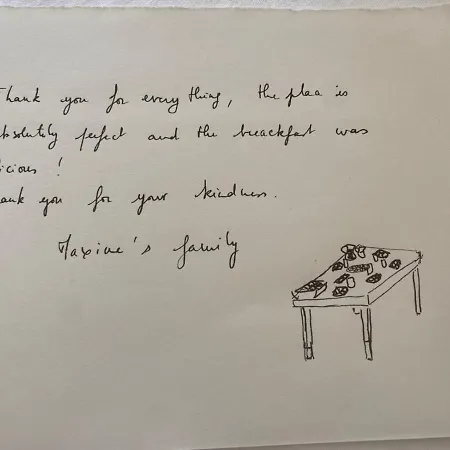 Thank you for every thing, the plaa is
absolutily perfect and the breackfast was
licious !
ank you for your kindness.
Maxime's family